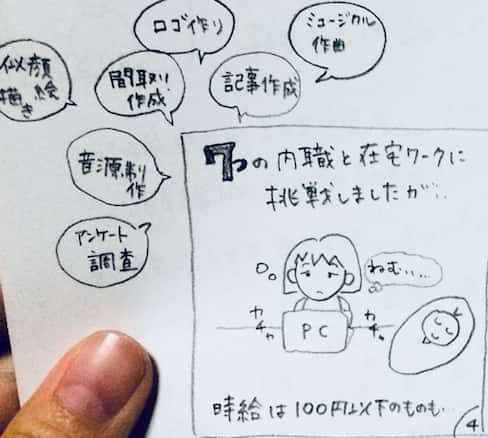 ロゴ作り
ミュージカル
作曲
似顔
絵
描き
間取り
作成
記事作成
音源制
作
アンケート
調査
7つの内職と在宅ワークに
挑戦しましたが…
ねむ……
カチャ
PC
カチャ
時給は100円以下のものも…
4